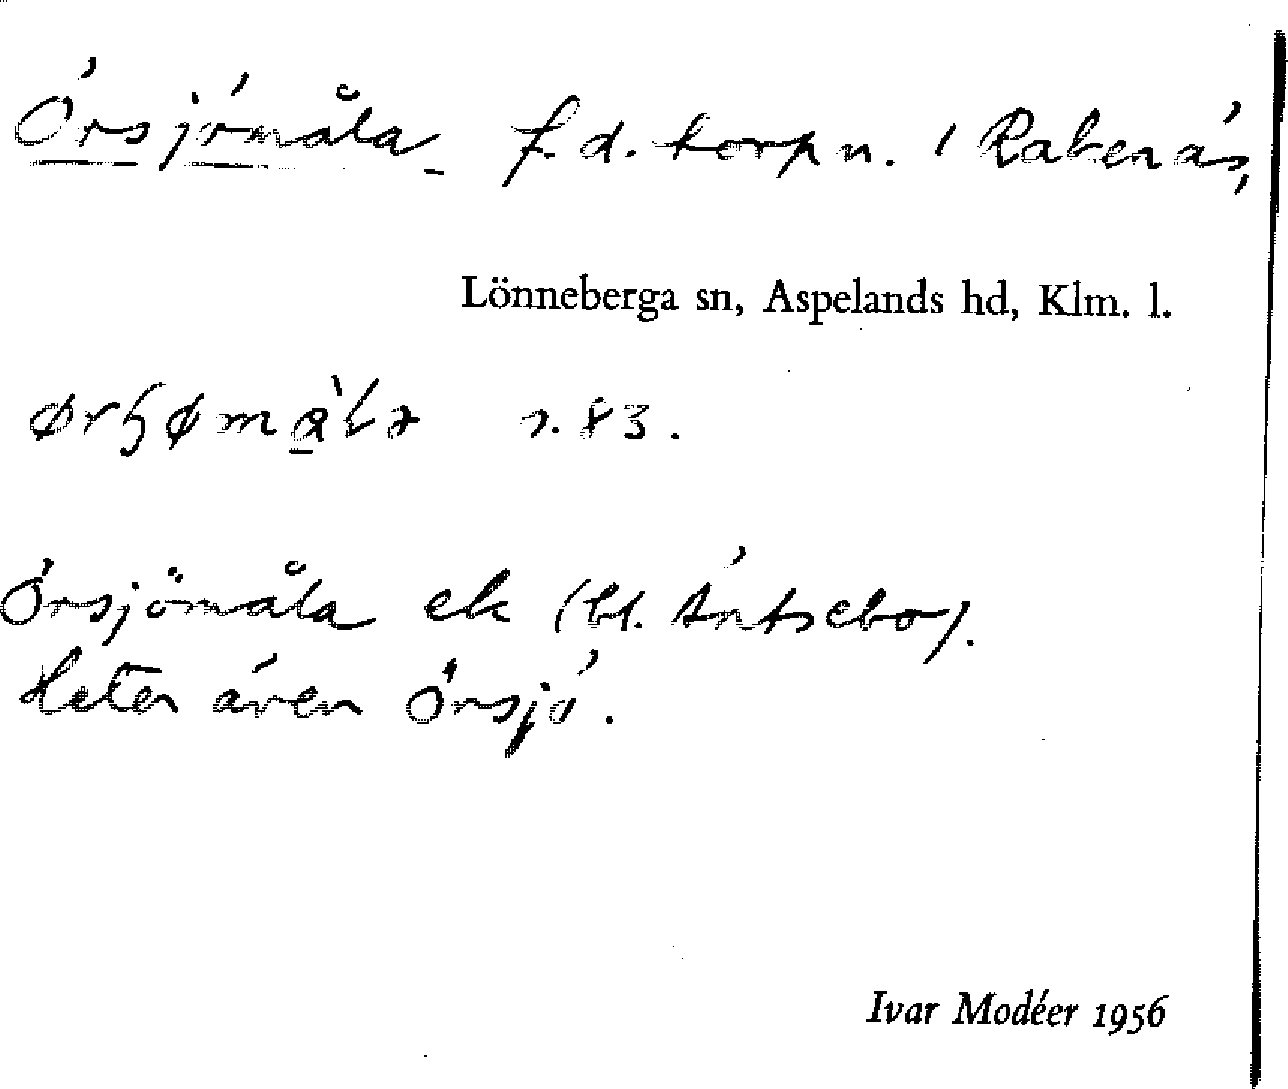 Örsjömåla f.d. torp n. i Rabenäs,
Lönneberga sn, Aspelands hd, Klm. l.
s. 83.
Örsjömåla ek (bl.
Heter även Örsjö.
Ivar Modéer 1956